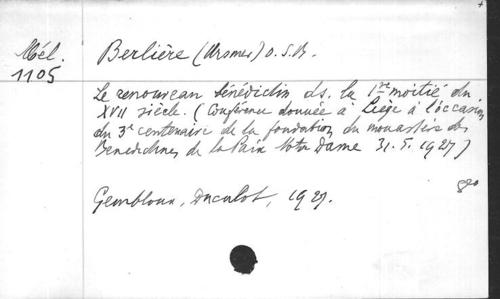 Mél.
1105
Berlière (Ursmer) O.S.B.
Le renouveau bénédictin ds. la 1re moitié du
XVII siècle. (Conférence donnée à Liège à l'occasion
du 3e centenaire de la fondation du monastère des
Bénédictines de la Paix Notre Dame 31. 5. 1927)
8°
Gembloux, Duculot, 1927.